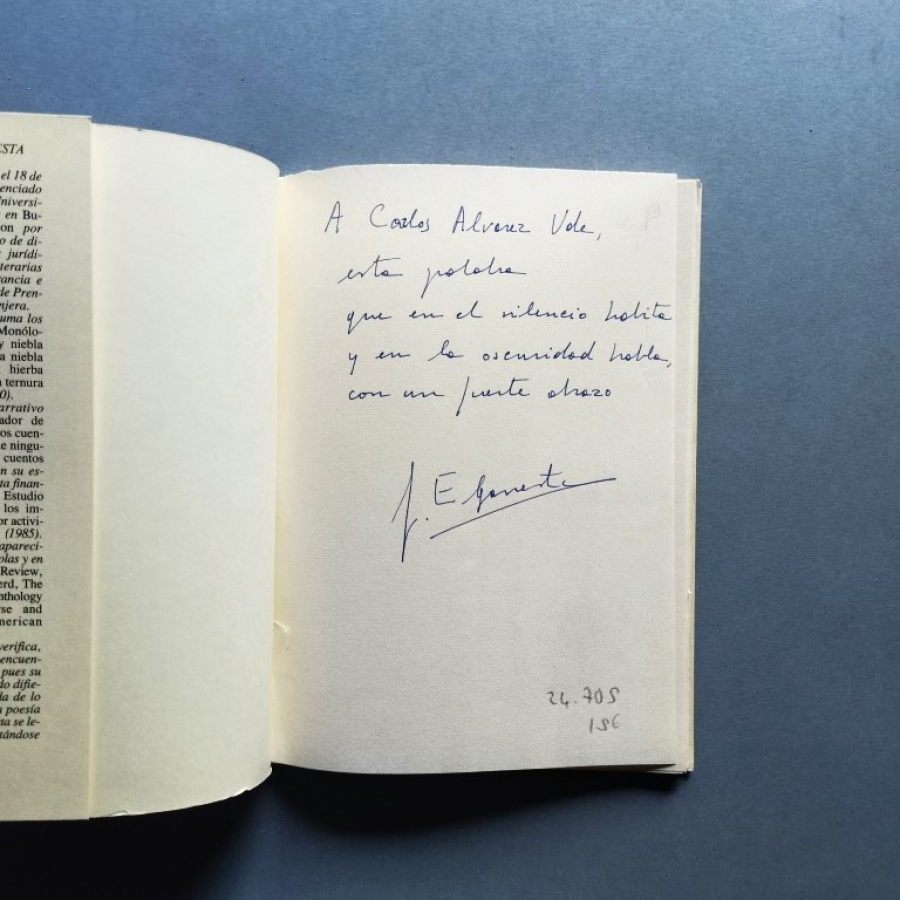 ESTA
el 18 de
enciado
Universi-
en Bu-
on por
o de di-
jurídi-
terarias
rancia e
de Pren-
njera.
uma los
Monólo-
y niebla
a niebla
hierba
a ternura
0).
arrativo
ador de
os cuen-
e ningu-
cuentos
n su es-
ta finan-
Estudio
los im-
or activi-
(1985).
apareci-
olas y en
Review,
erd, The
nthology
rse and
merican
verifica,
encuen-
pues su
do difie-
da de lo
a poesía
na se le-
tándose
A Carlos Alvarez Ude,
esta palabra
que en el silencio habita
y en la oscuridad habla,
con un fuerte abrazo
24.705
15€